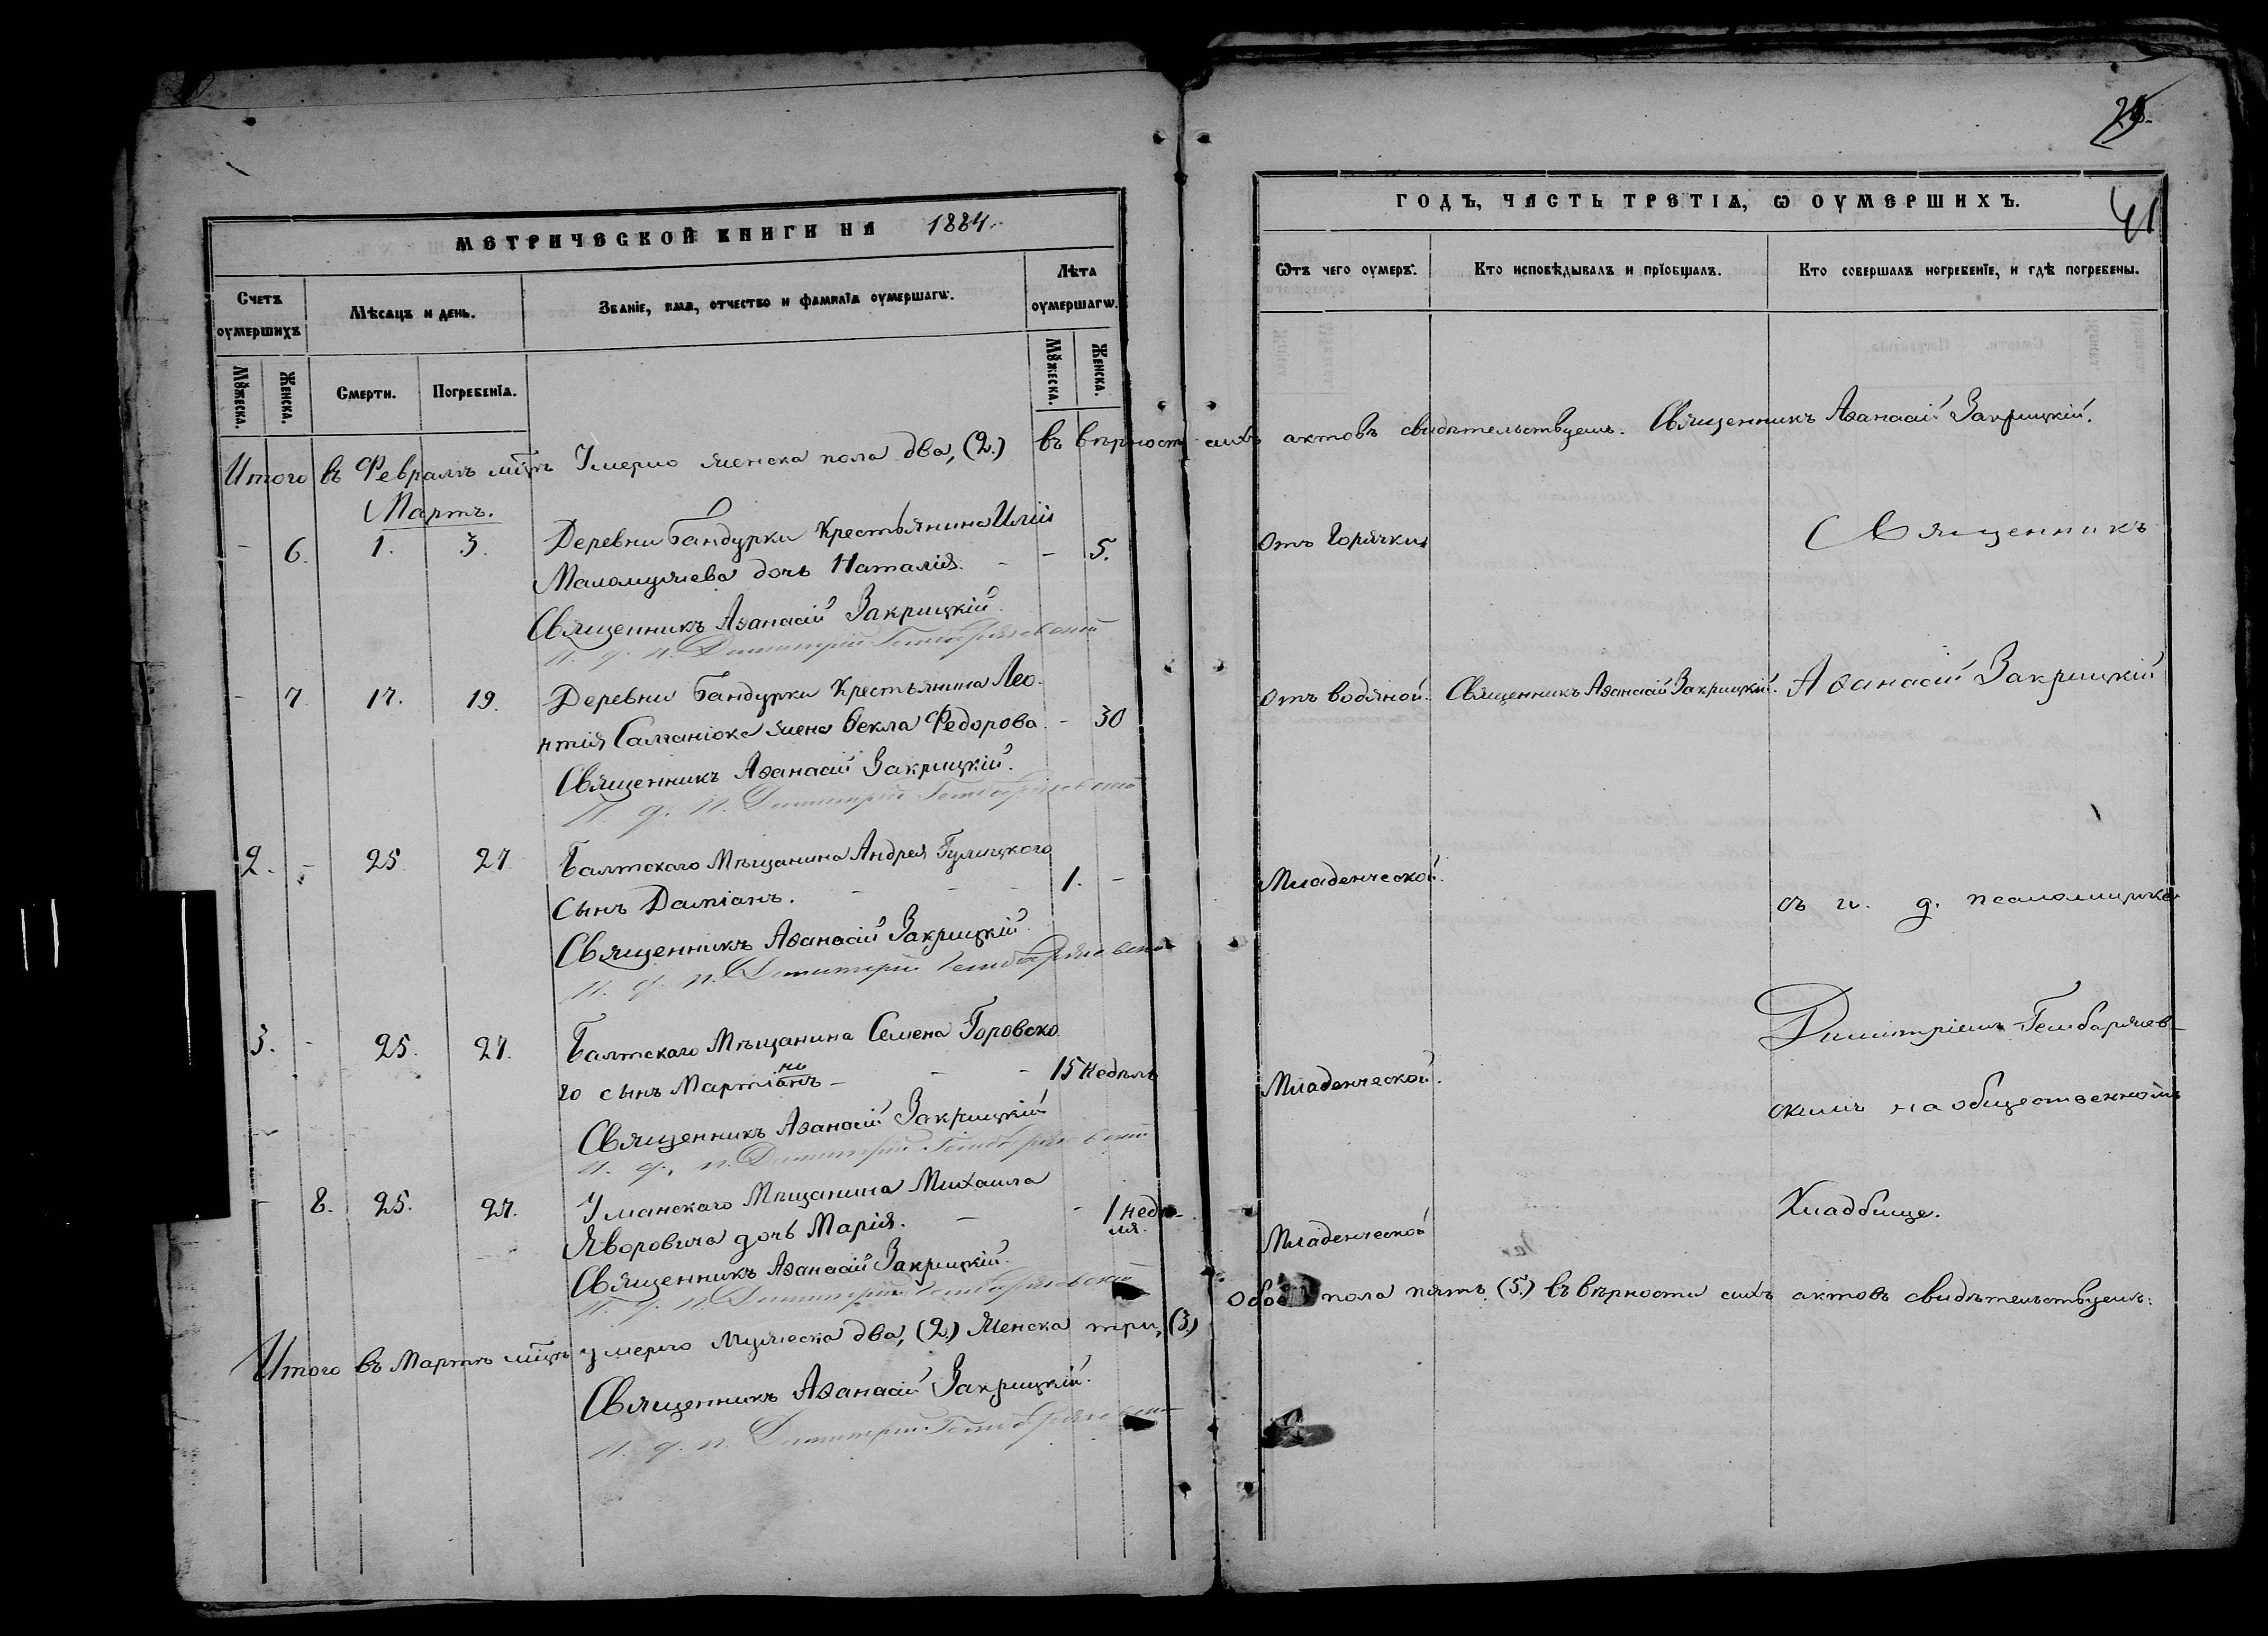 МЕТРИЧЕСКОЙ КНИГИ НА 1884.
Счетъ оумершихъ
Мѣсяцъ и день.
Званіе, имя, отчество и фамилїа оумершагѡ.
Лѣта оумершагѡ.
Мꙋжеска.
Женска.
Смерти.
Погребенїа.
Мꙋжеска.
Женска.
Итого въ Февралѣ мцѣ Умерло женска пола два, (2.) въ вѣрности сихъ актовъ свидѣтельствуемъ. Священникъ Аѳанасій Закрицкій.
Мартъ.
- 6. 1. 3. Деревни Бандурки Крестьянина Иліи
Маломужева дочь Наталія. - - 5.
Священникъ Аѳанасій Закрицкій.
И. д. п. Димитрій Гембаржевскій
- 7. 17. 19. Деревни Бандурки Крестьянина Лео-
нтія жена Ѳекла Федорова. - 30
Священникъ Аѳанасій Закрицкій.
И. д. п. Димитрій Гембаржевскій
2. - 25 27 Балтскаго Мѣщанина Андрея Гулицкого
сынъ Даміанъ. - - - 1. -
Священникъ Аѳанасій Закрицкій.
И. д. п. Димитрій Гембаржевскій
3. - 25. 27. Балтскаго Мѣщанина Семена Горовско
го сынъ - - - 15 недѣль
Священникъ Аѳанасій Закрицкій
И. д. п. Димитрій Гембаржевскій
- 8. 25. 27. Уманскаго Мѣщанина Михаила
Яворовича дочь Марія. - - 1 недѣ-
ля.
Священникъ Аѳанасій Закрицкій.
И. д. п. Димитрій Гембаржевскій
Итого въ Мартѣ мцѣ умерло мужеска два, (2.) Женска три, (3.) Обоего пола пять (5.) въ вѣрности сихъ актовъ свидѣтельствуемъ:
Священникъ Аѳанасій Закрицкій.
И. д. п. Димитрій Гембаржевскій
41
ГОДЪ, ЧАСТЬ ТРЕТІѦ, Ѡ ОУМЕРШИХЪ.
Ѿтъ чего оумеръ.
Кто исповѣдывалъ и прїобщалъ.
Кто совершалъ погребенїе, и гдѣ погребены.
Отъ Горячки
Священникъ
Отъ водяной. Священникъ Аѳанасій Закрицкій. Аѳанасій Закрицкій
Младенческой.
съ и. д. псаломщика
Димитріемъ Гембаржев-
Младенческой.
скимъ на общественномъ
Кладбище.
Младенческой